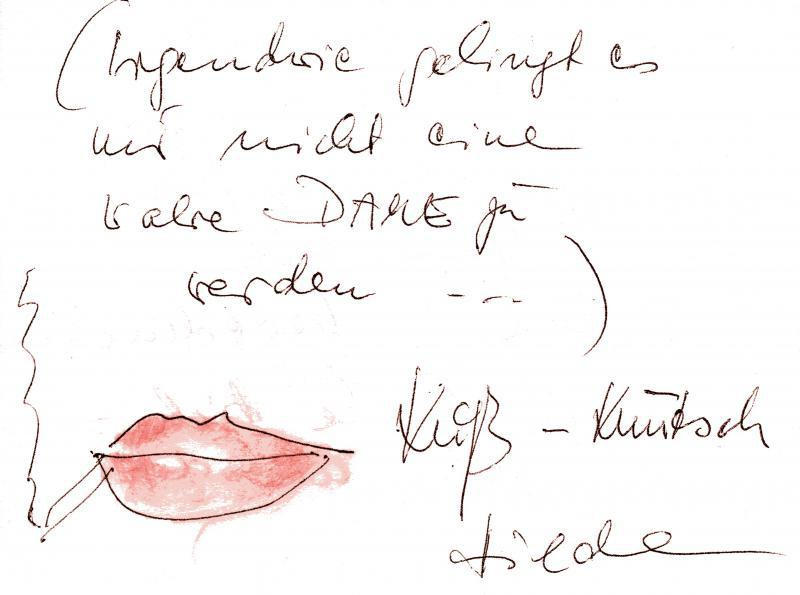 (Irgendwie gelingt es
mir nicht eine
wahre DAME zu
werden ---)
Kuß - Knutsch